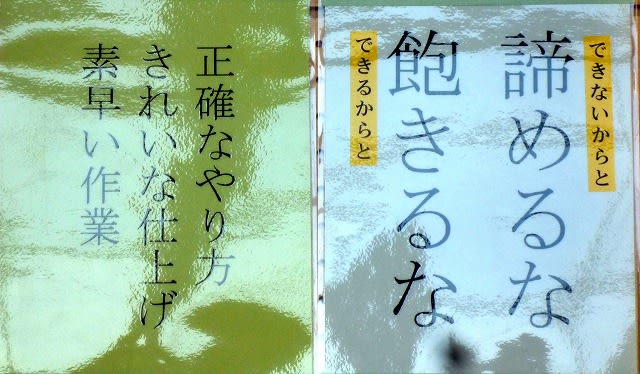 できないからと
諦めるな
できるからと
飽きるな
正確なやり方
きれいな仕上げ
素早い作業